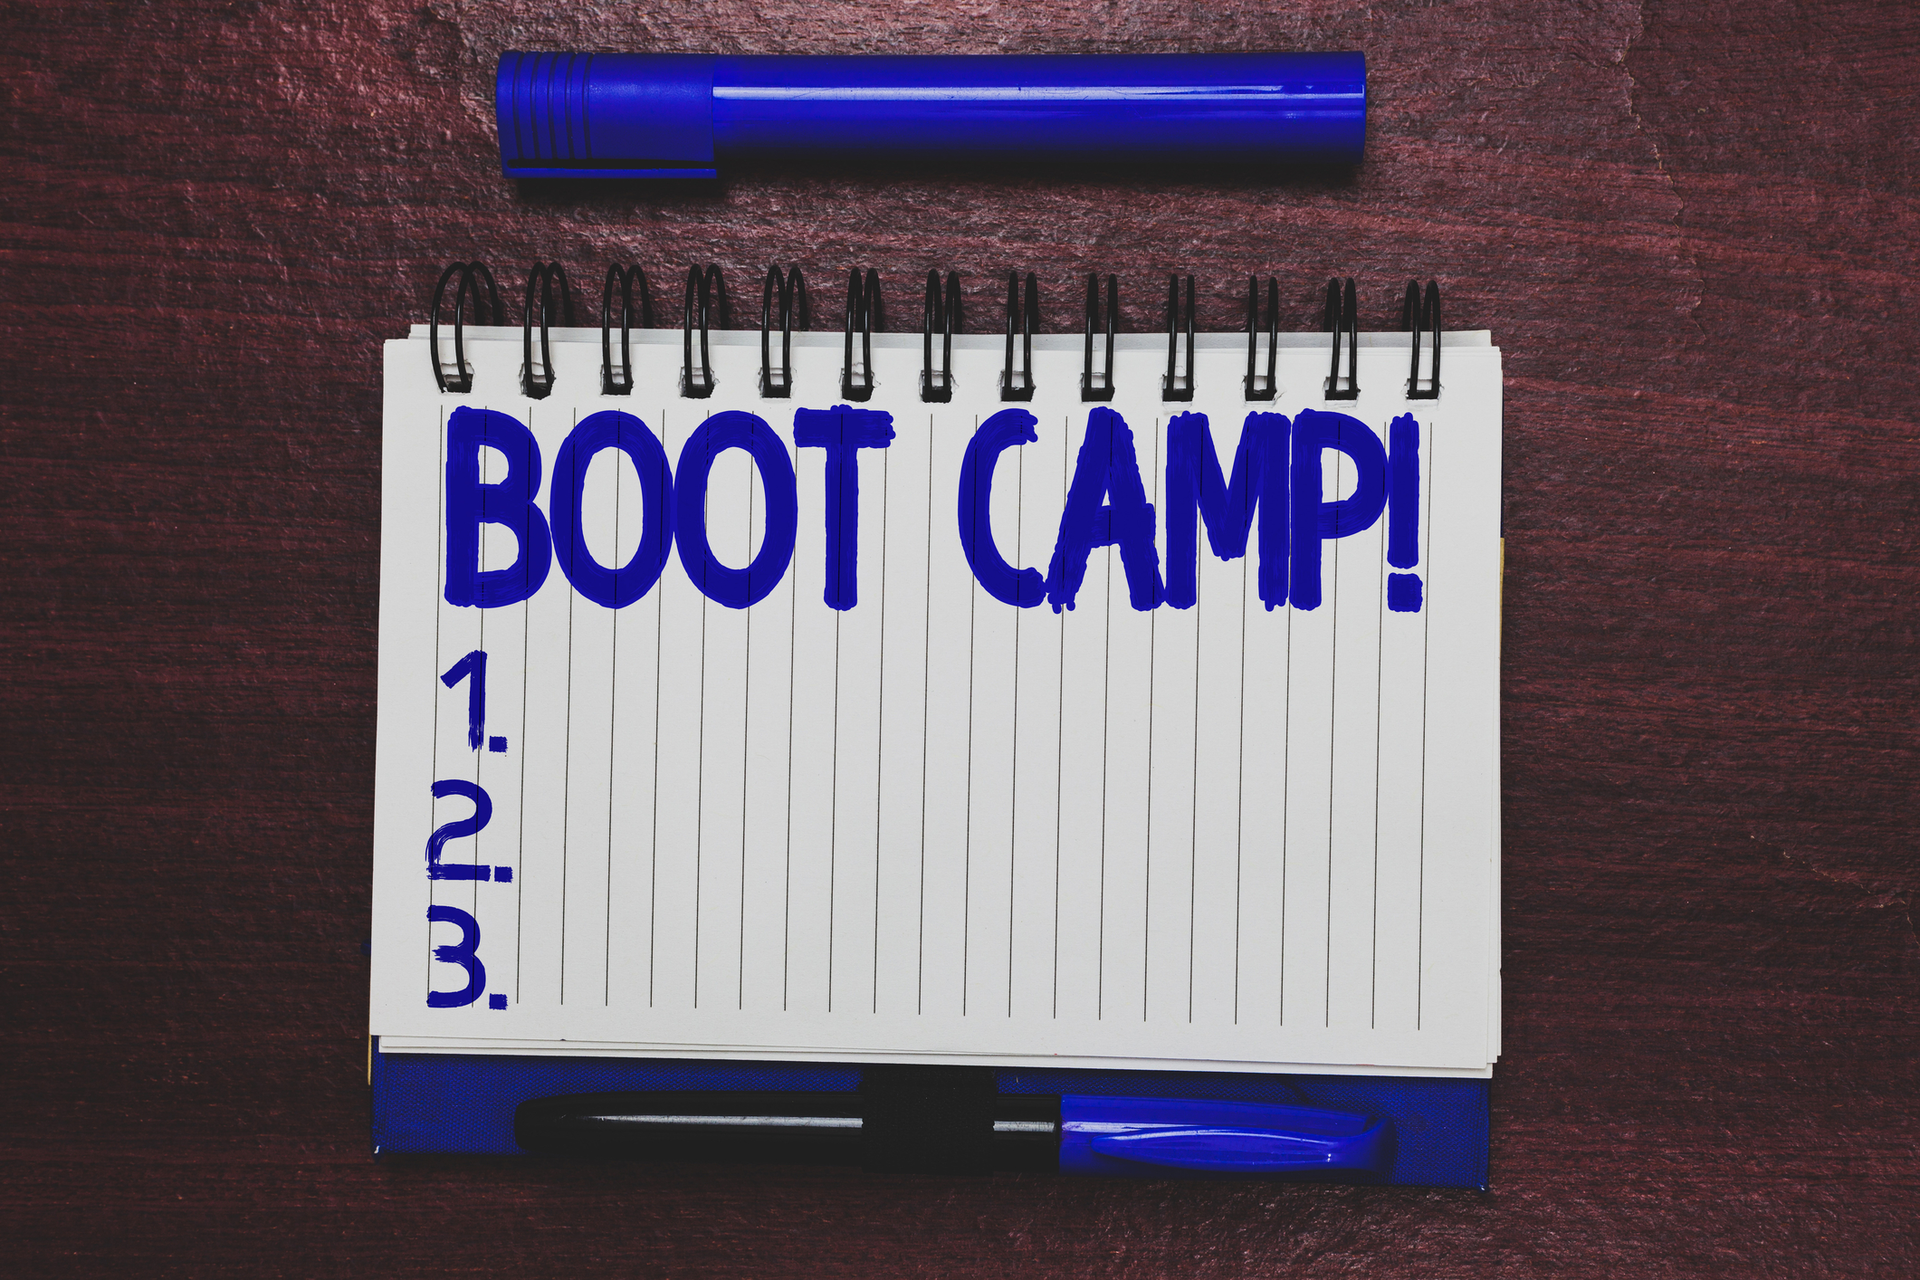 BOOT CAMP!
1.
2.
3.